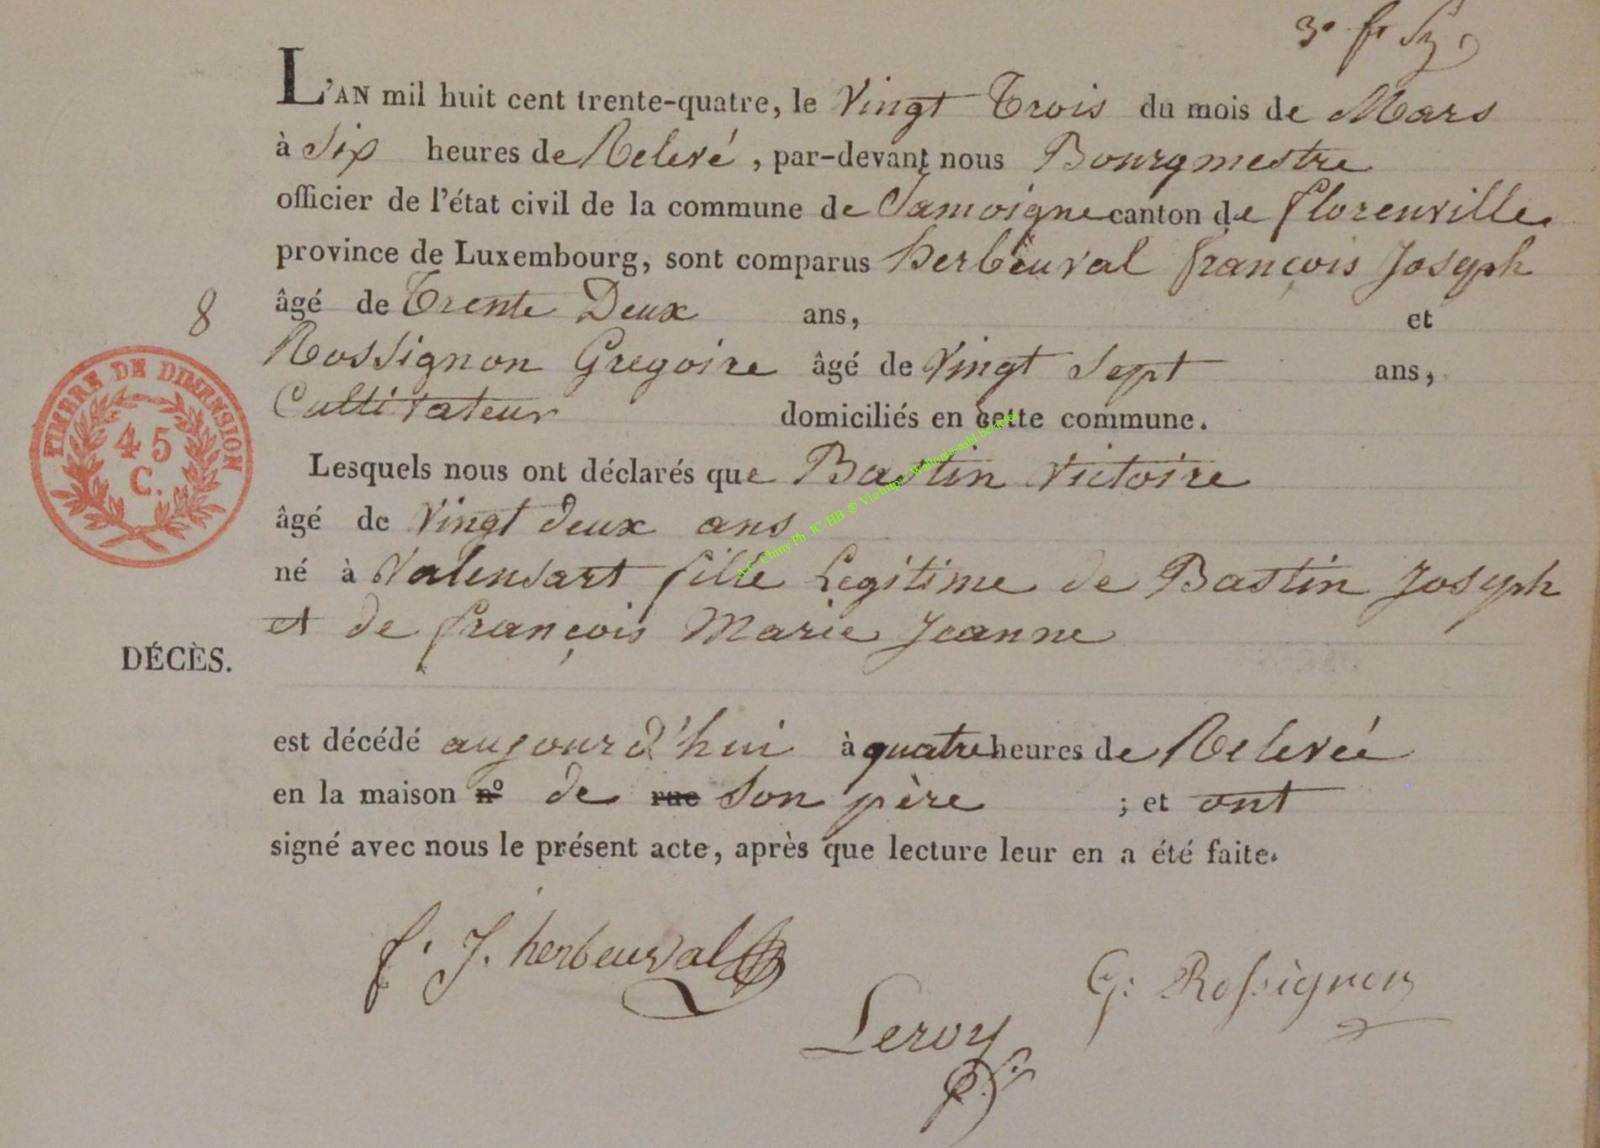 3e f Sz
L'AN mil huit cent trente-quatre, le Vingt Trois du mois de Mars
à Six heures de Relevé, par-devant nous Bourgmestre
officier de l'état civil de la commune de Jamoigne canton de florenville
province de Luxembourg, sont comparus herbeuval françois Joseph
8
âgé de Trente Deux ans, et
Rossignon Gregoire âgé de Vingt Sept ans,
Cultivateur domiciliés en cette commune.
TIMBRE DE DIMENSION
45
C.
Lesquels nous ont déclarés que Bastin Victoire
âgé de Vingt deux ans
né à Valensart fille Legitime de Bastin Joseph
et de françois Marie Jeanne
DÉCÈS.
est décédé aujourd'hui à quatre heures de Relevée
en la maison nº de rue Son père ; et ont
signé avec nous le présent acte, après que lecture leur en a été faite.
f. J. herbeuval
G: Rossignon
Leroy